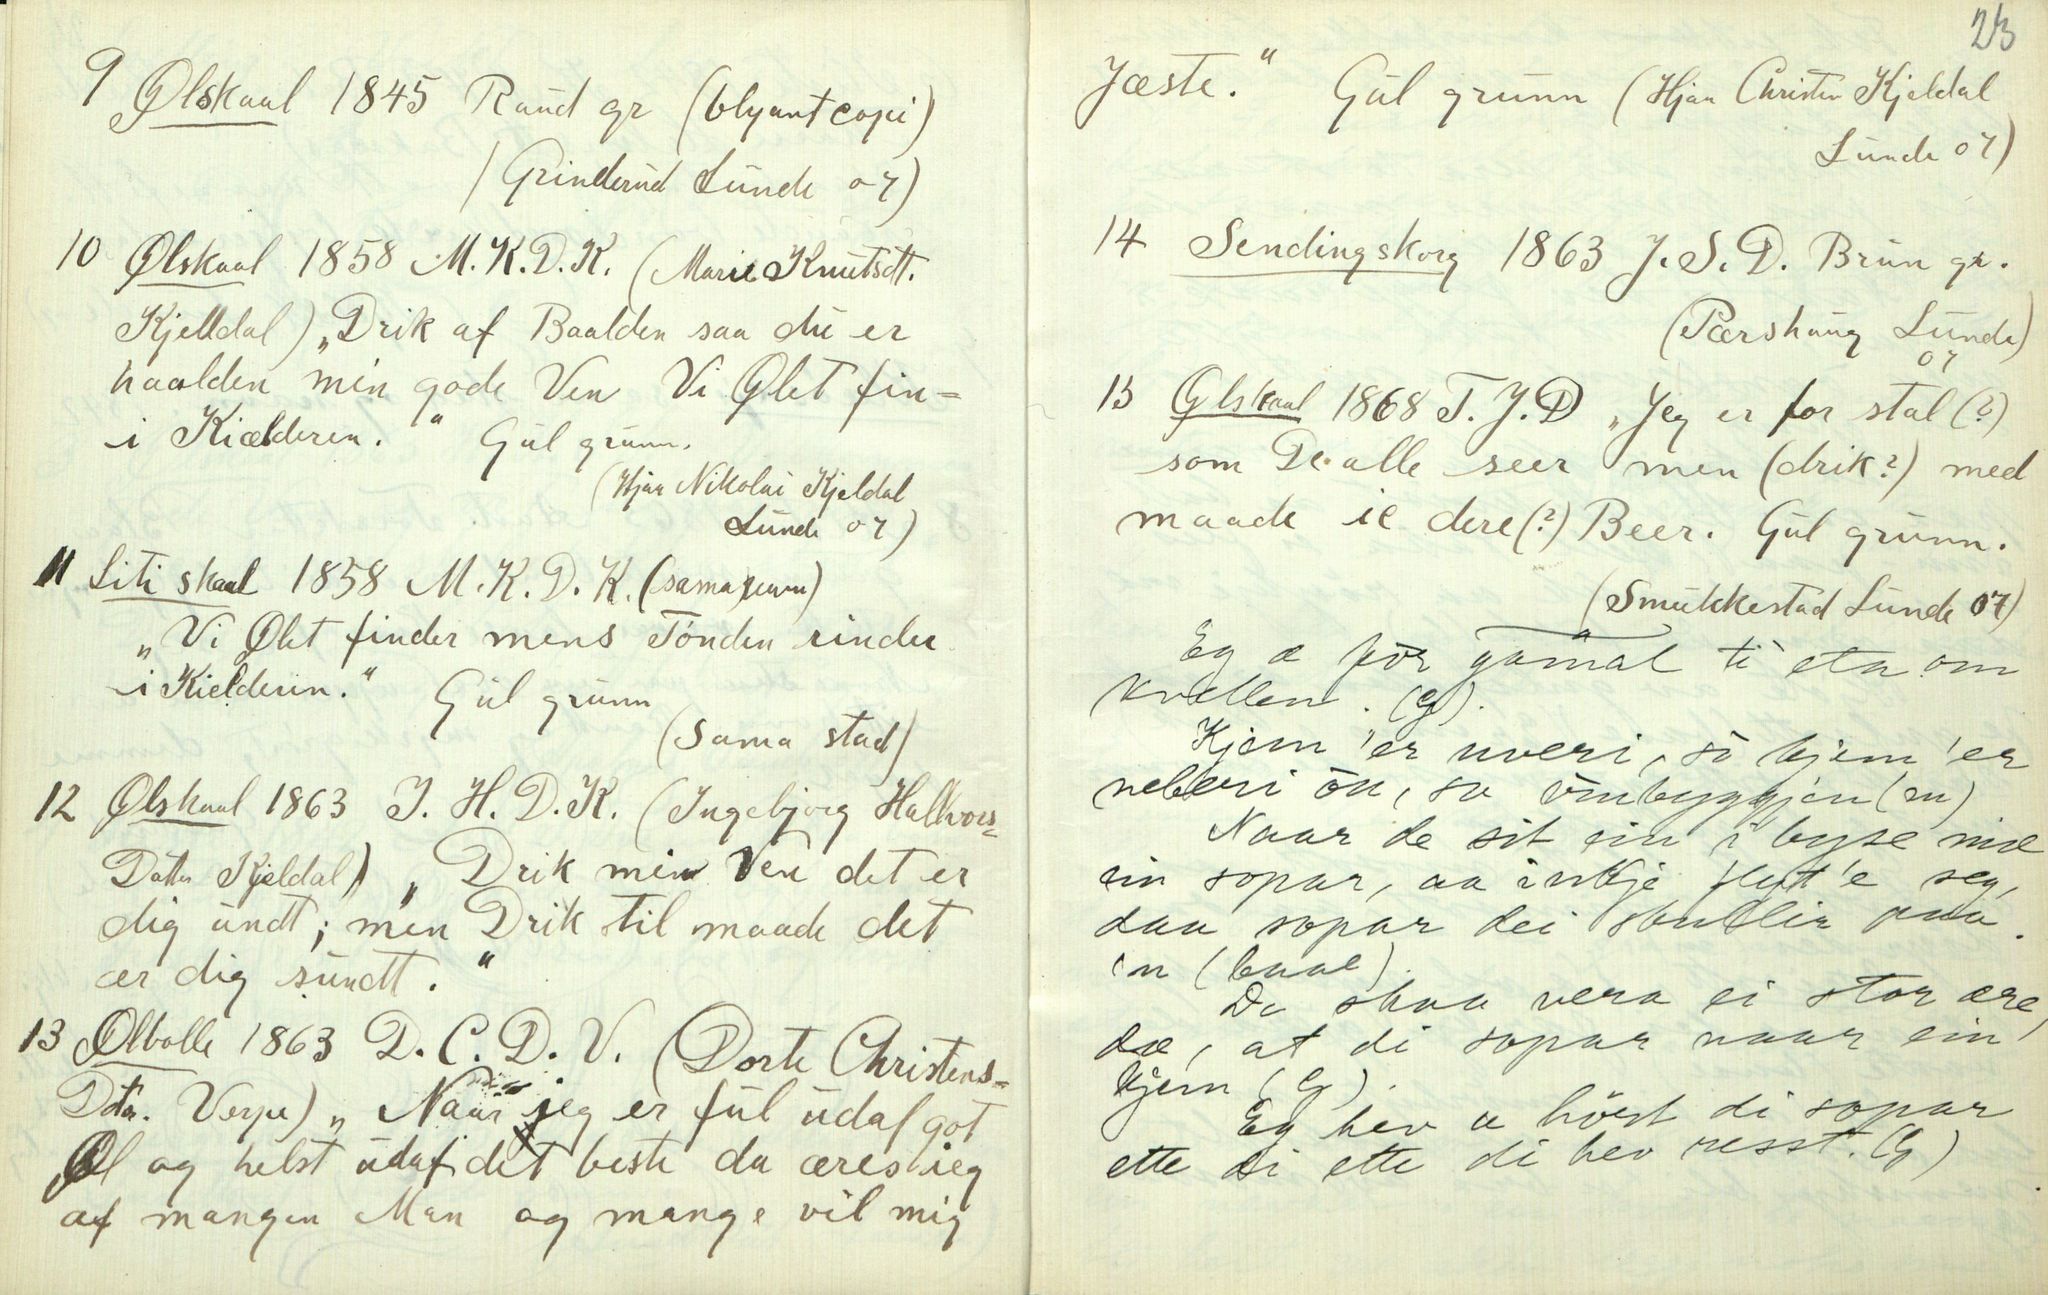 9 Ølskaal 1845 Raud gr (blyantcopi)
(Grinderud Lunde 07)
10 Ølskaal 1858 M.K.D.K. (Marie Knutsdt.
Kjelldal) „Drik af Baalden saa du er
haalden min gode Ven Vi Ølet fin=
i Kiælderen." Gul grunn.
(Hjaa Nikolai Kjeldal
Lunde 07)
11 Liti skaal 1858 M.K.D.K. (sama)
„Vi Ølet finder mens Tónden rinder
i Kielderen." Gul grunn
(Sama stad)
12 Ølskaal 1863 I. H. D. K. (Ingebjorg Halvors=
Datter Kjeldal) „Drik min Ven det er
dig undt; men Drik til maade det
er dig sundt."
13 Ølbolle 1863 D. C. D. V. (Dorte Christens=
Dotr. Verpe) „Naar jeg er ful udaf got
Øl og helst udaf det beste da æres ieg
af mangen Man og mange vil mig
23
Jæste." Gul grunn (Hjaa Christen Kjeldal
Lunde 07)
14 Sendingskorg 1863 J. S. D. Brun gr.
(Pærshaug Lunde)
07
15 Ølskaal 1868 T. J. D „Jeg er for stal (?)
som De alle seer men (drik?) med
maade ie dere (?) Beer. Gul grunn.
(Smukkestad Lunde 07)
Eg æ för gamal ti eta om
kvellen.
Kjem 'er uveri, so kjem 'er
neberi
Naar de sit ein i byse mæ
ein sopar, aa inkje flyt'e seg,
daa sopar dei
Da skaa vera ei stor ære,
dæ, at di sopar naar ein
kjem
Eg hev a hört di sopar
ette di ette di hev resst.